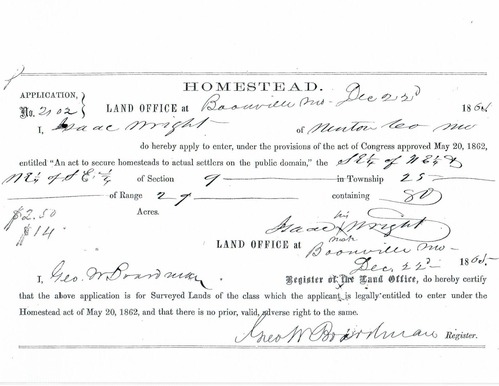 HOMESTEAD.
APPLICATION,
No. 2102
LAND OFFICE at Boonville Mo. Dec 22d 1865
I, Isaac Wright of Newton Co Mo
do hereby apply to enter, under the provisions of the act of Congress approved May 20, 1862,
entitled "An act to secure homesteads to actual settlers on the public domain," the S E ¼ of N E ¼ &
N E ¼ of S E. ¼ of Section 9 in Township 25
of Range 29 containing 80
$2.50 Acres.
$14
Isaac his X mark Wright
LAND OFFICE at Boonville Mo.
Dec. 22d 1865.
I, Geo. W Boardman Register of the Land Office, do hereby certify
that the above application is for Surveyed Lands of the class which the applicant is legally entitled to enter under the
Homestead act of May 20, 1862, and that there is no prior, valid, adverse right to the same.
Geo W Boardman Register.